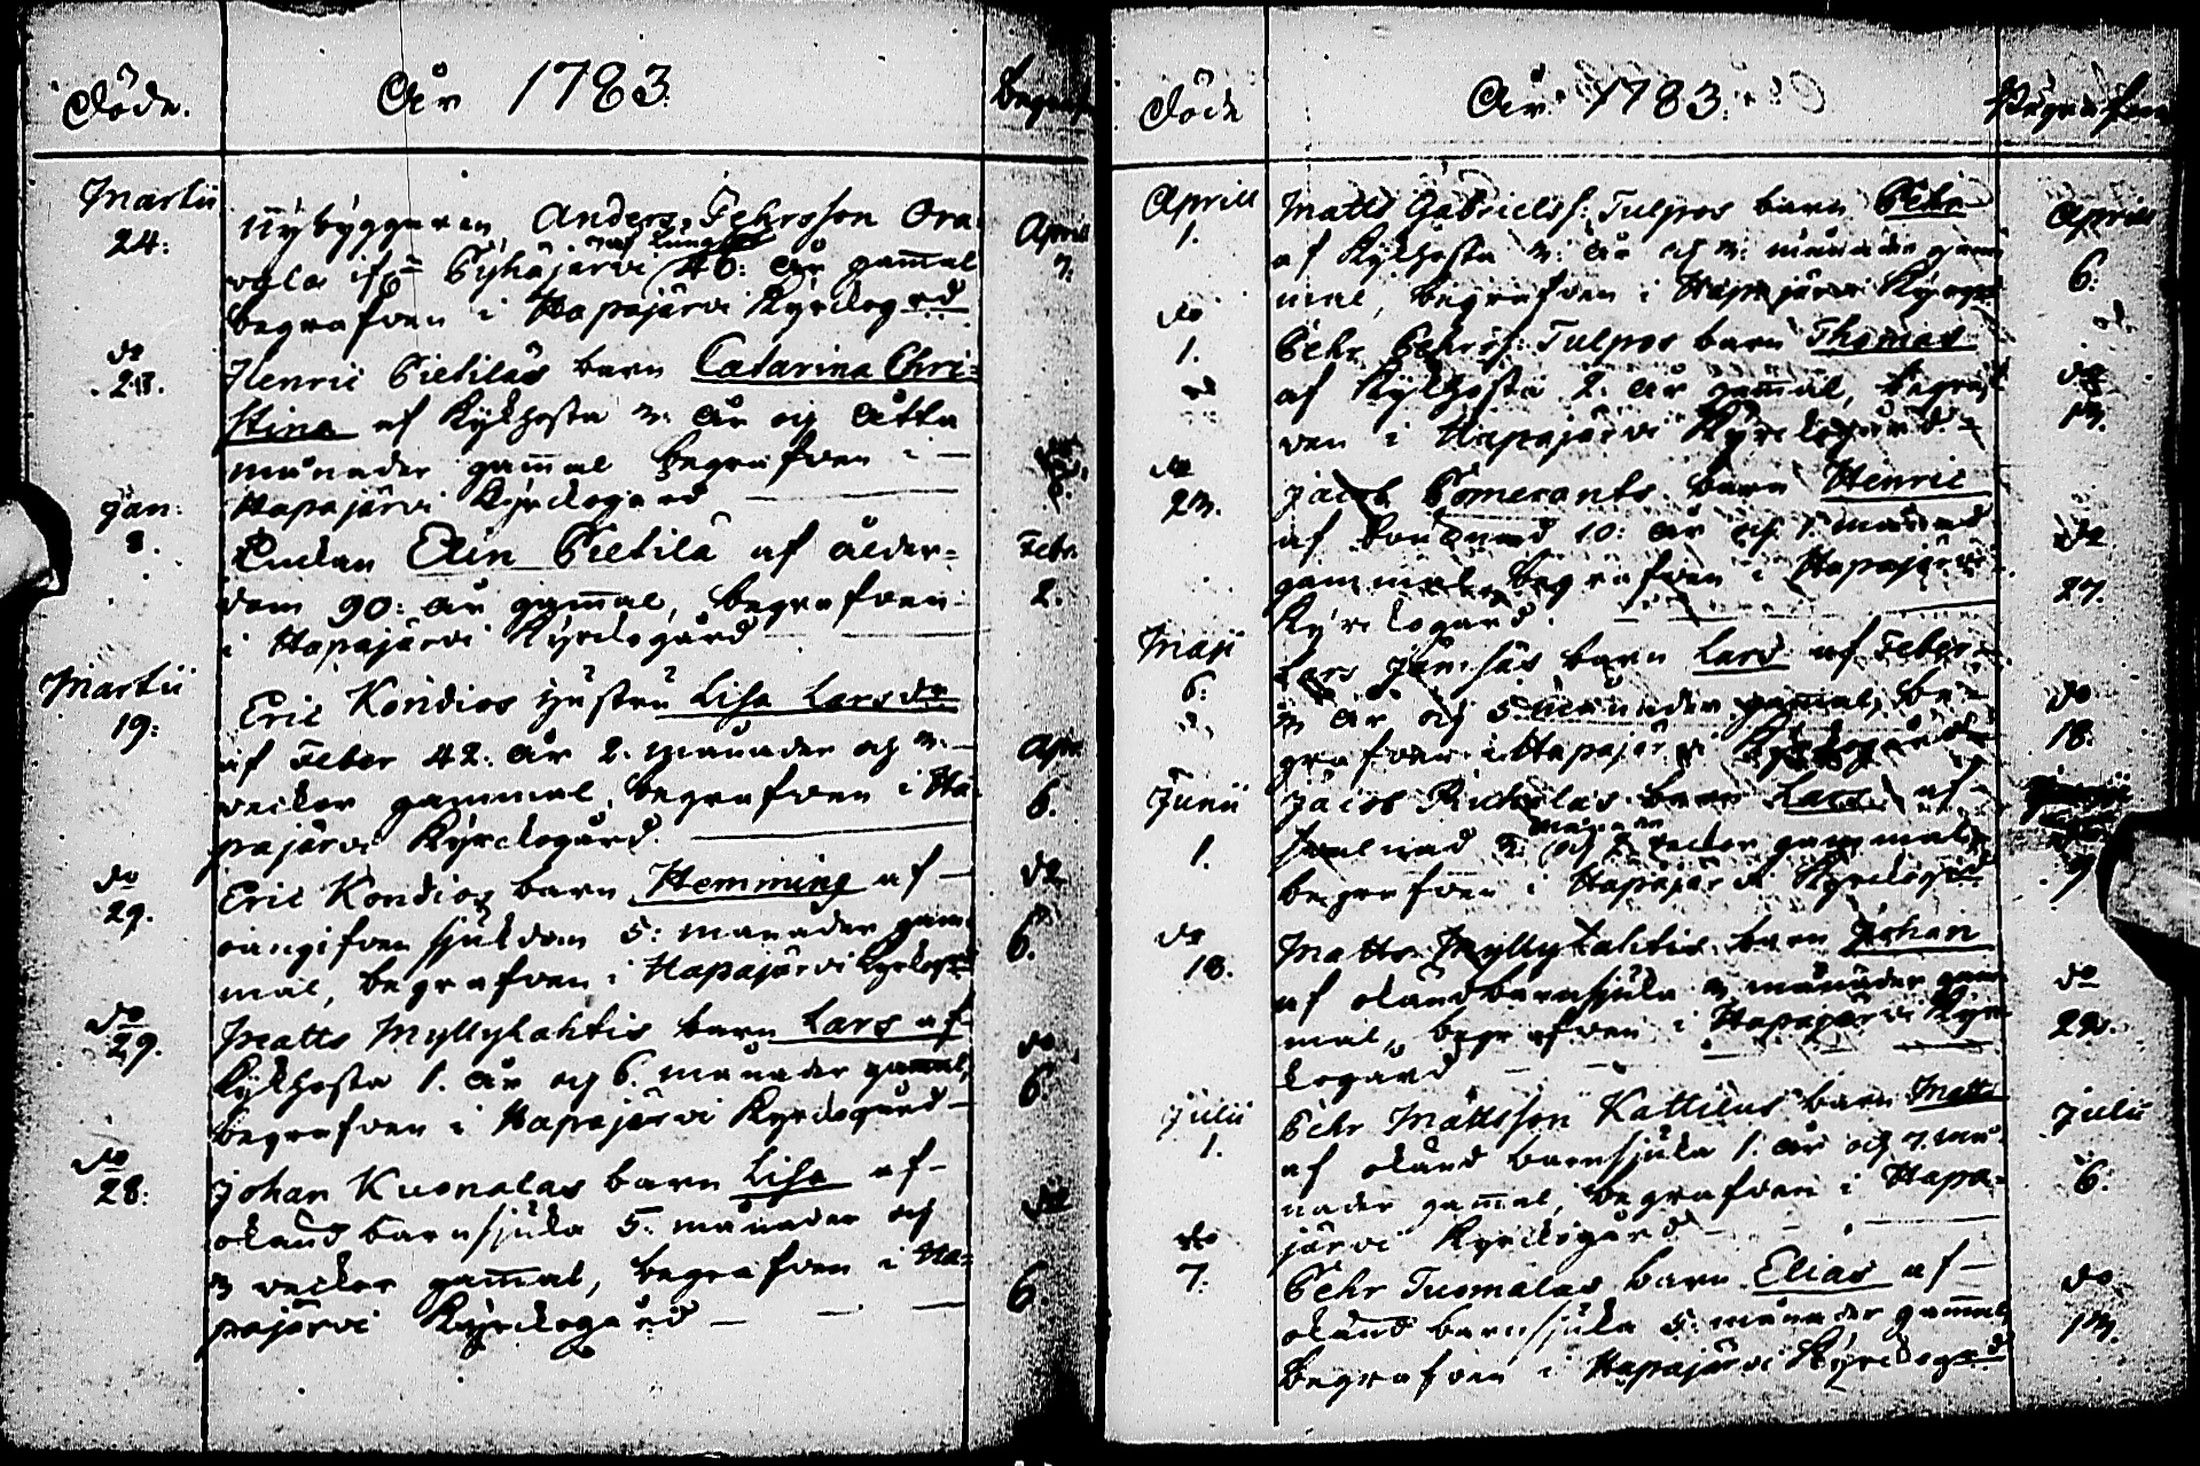 Döde.
År 1783.
Begrafn
Martii
24:
Nybyggaren Anders Pehrsson Ora
vala ifr. Pyhäjärvi af Lungsot 46: år gammal
begrafven i Hapajärvi Kyrckogrd
Aprill
7.
do
28.
Henric Pietiläs barn Catarina Chri=
stina af Kykhosta 3: år och åtta
månader gammal begrafven i —
Hapajärvi Kyrckogård
do
6.
Jan:
8.
Enckan Elin Pietilä af ålder=
dom 90: år gammal, begrafven
i Hapajärvi Kyrckogård
Febr.
2.
Martii
19:
Eric Kondios hustru Lisa Larsdr
af Feber 42. år 2. månader och 3.
veckor gammal, begrafven i Ha
pajärvi Kyrckogård.
Apr.
6.
do
29.
Eric Kondios barn Hemming af —
oangifven sjukdom 5: månader gam
mal, begrafven i Hapajärvi Kyrckogrd
do
6.
do
29.
Matts Myllylahtis barn Lars af
Kykhosta 1. år och 6. månader gammal,
begrafven i Hapajärvi Kyrckogård —
do
6.
do
28:
Johan Kuonalas barn Lisa af —
okänd barnsjuka 5. månader och
3 veckor gammal, begrafven i Ha=
pajärvi Kyrckogård —
do
6.
Döde
År 1783.
Begrafven
Aprill
1.
Matts Gabrielss: Tulpos barn Pehr
af Kykhosta 3: år och 3: månader gam
mal, begrafven i Hapajärvi Kyrcog
Aprill
6.
do
1.
Pehr Pehrss: Tulpos barn Thomas
af Kykhosta 2. år gammal, begraf
ven i Hapajärvi Kyrckogård
do
13.
do
23.
Jacob Pomerants barn Henric
af 10: år och 1. månad
gammal, begrafven i Hapajärvi
Kyrckogård.
do
27.
Maji
6.
Lars Jämsäs barn Lars af Feber
3 år och 5 månader gammal, be
grafven i Hapajärvi Kyrckogård
do
18.
Junii
1.
Jacob barn Lars af
månader
2. och veckor gammal
begrafven i Hapajärvi Kyrckogård
9
do
18.
Matts Myllylahtis barn Johan
af okänd barnsjuka 3 månader gam
mal, begrafven i Hapajärvi Kyr
kogård
do
22.
Julii
1.
Pehr Mattsson Kattilus barn Matts
af okänd barnsjuka 1. år och 7. må
nader gammal, begrafven i Hapa=
järvi Kyrckogård
Julii
6.
do
7.
Pehr Tuomalas barn Elias af —
okänd barnsjuka 5: månader gammal,
begrafven i Hapajärvi Kyrckogrd
do
13.